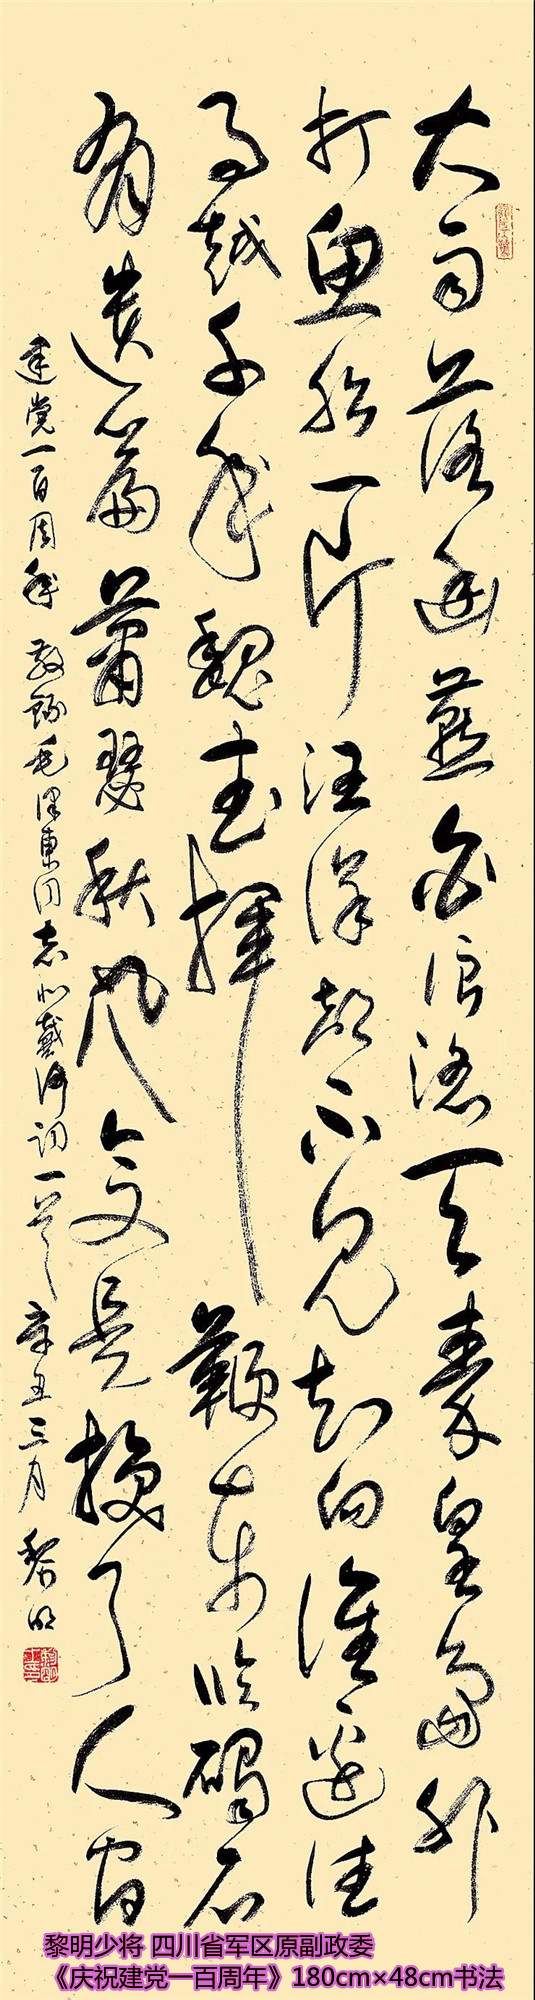 大雨落幽燕白浪滔天秦皇島外
打魚船一片汪洋都不見知向誰邊往
事越千年魏武揮鞭東臨碣石
有遺篇蕭瑟秋風今又是換了人間
建党一百周年 敬錄毛澤東同志北戴河詞一首 辛丑三月 黎明
黎明少将 四川省军区原副政委
《庆祝建党一百周年》180cm×48cm书法